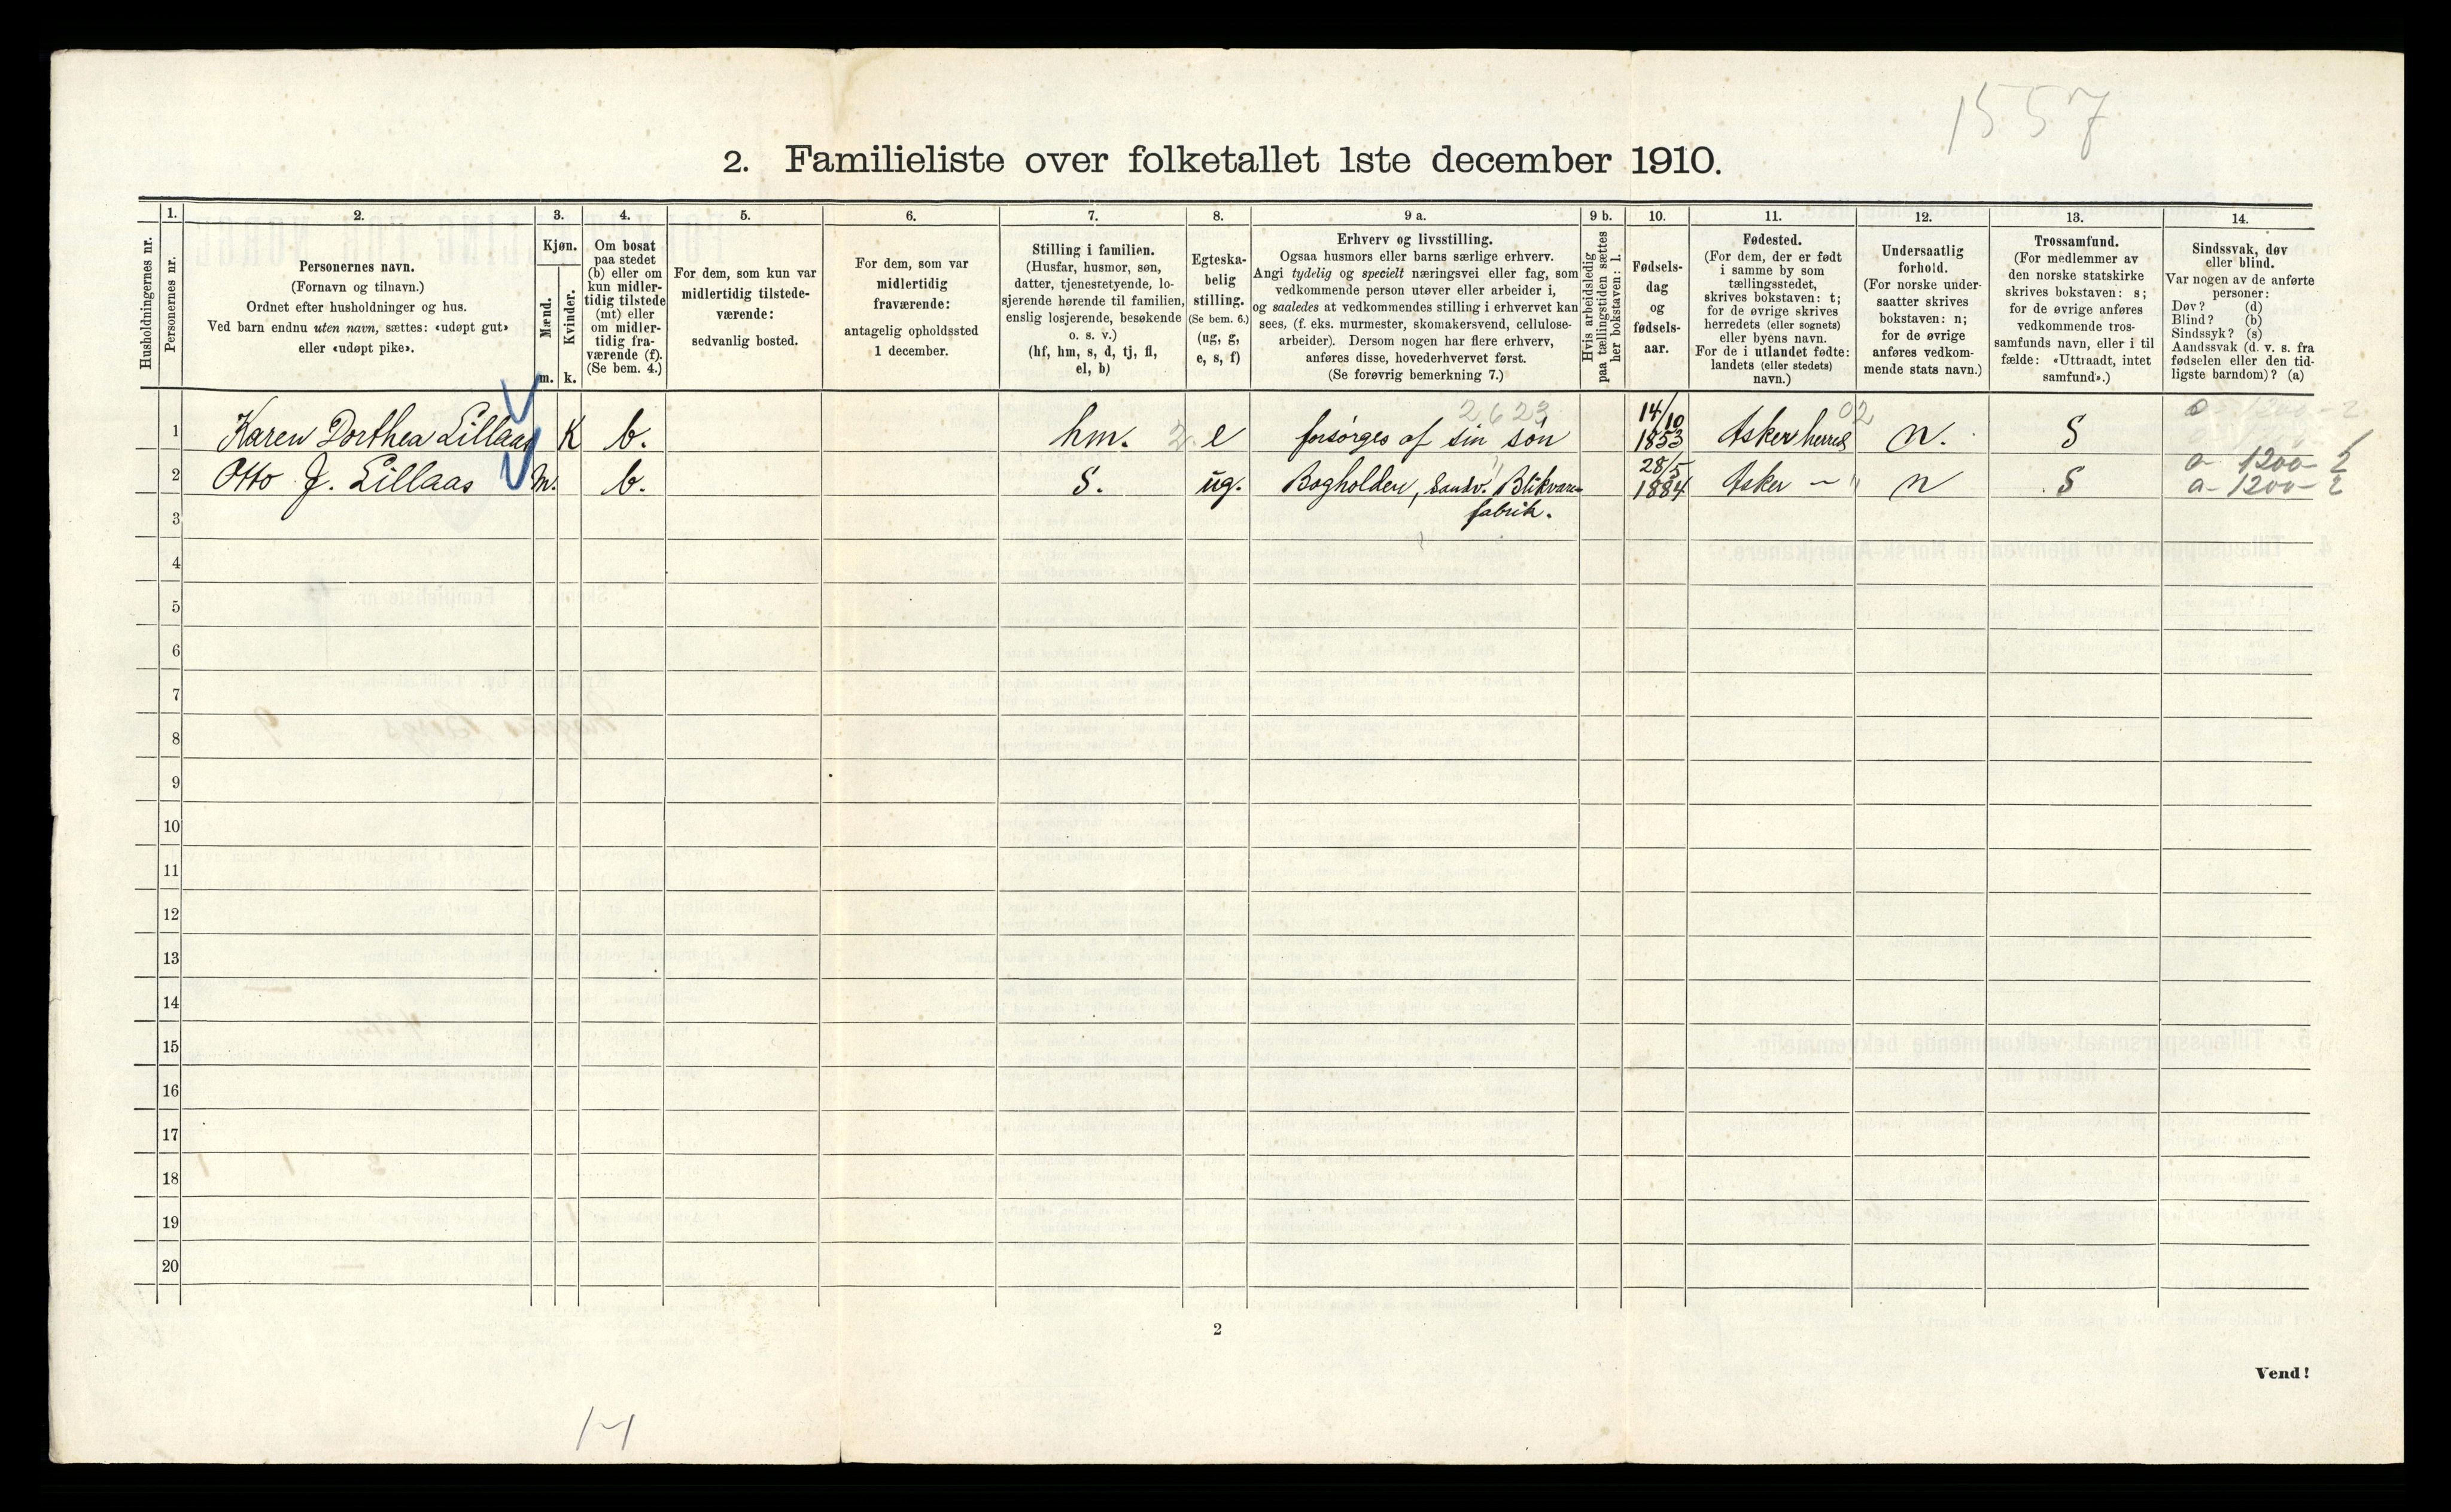 1557
2. Familieliste over folketallet 1ste december 1910.
1. 2. 3. 4. 5. 6. 7. 8. 9 a. 9 b. 10. 11. 12. 13. 14.
Husholdningernes nr.
Personernes nr.
Personernes navn.
(Fornavn og tilnavn.)
Ordnet efter husholdninger og hus.
Ved barn endnu uten navn, sættes: «udøpt gut»
eller «udøpt pike».
Kjøn.
Mænd.
Kvinder.
m. k.
Om bosat
paa stedet
(b) eller om
kun midler-
tidig tilstede
(mt) eller
om midler-
tidig fra-
værende (f).
(Se bem. 4.)
For dem, som kun var
midlertidig tilstede-
værende:
sedvanlig bosted.
For dem, som var
midlertidig
fraværende:
antagelig opholdssted
1 december.
Stilling i familien.
(Husfar, husmor, søn,
datter, tjenestetyende, lo-
sjerende hørende til familien,
enslig losjerende, besøkende
o. s. v.)
(hf, hm, s, d, tj, fl,
el, b)
Egteska-
belig
stilling.
(Se bem. 6.)
(ug, g,
e, s, f)
Erhverv og livsstilling.
Ogsaa husmors eller barns særlige erhverv.
Angi tydelig og specielt næringsvei eller fag, som
vedkommende person utøver eller arbeider i,
og saaledes at vedkommendes stilling i erhvervet kan
sees, (f. eks. murmester, skomakersvend, cellulose-
arbeider). Dersom nogen har flere erhverv,
anføres disse, hovederhvervet først.
(Se forøvrig bemerkning 7.)
Hvis arbeidsledig
paa tællingstiden sættes
her bokstaven: l.
Fødsels-
dag
og
fødsels-
aar.
Fødested.
(For dem, der er født
i samme by som
tællingsstedet,
skrives bokstaven: t;
for de øvrige skrives
herredets (eller sognets)
eller byens navn.
For de i utlandet fødte:
landets (eller stedets)
navn.)
Undersaatlig
forhold.
(For norske under-
saatter skrives
bokstaven: n;
for de øvrige
anføres vedkom-
mende stats navn.)
Trossamfund.
(For medlemmer av
den norske statskirke
skrives bokstaven: s;
for de øvrige anføres
vedkommende tros-
samfunds navn, eller i til
fælde: «Uttraadt, intet
samfund».)
Sindssvak, døv
eller blind.
Var nogen av de anførte
personer:
Døv? (d)
Blind? (b)
Sindssyk? (s)
Aandssvak (d. v. s. fra
fødselen eller den tid-
ligste barndom)? (a)
2623 02
1 Karen Dorthea Lillaas K b. hm. 2 e forsørges af sin søn 14/10 1853 Asker herred n. S
2 Otto J. Lillaas m. b. s. ug. Bogholder, Sandv. Blikvare- 28/5 1884 Asker - " n S a- 1200- 2
fabrik. a- 1200- 2
3
4
5
6
7
8
9
10
11
12
13
14
15
16
17
18
19
20
2
Vend!